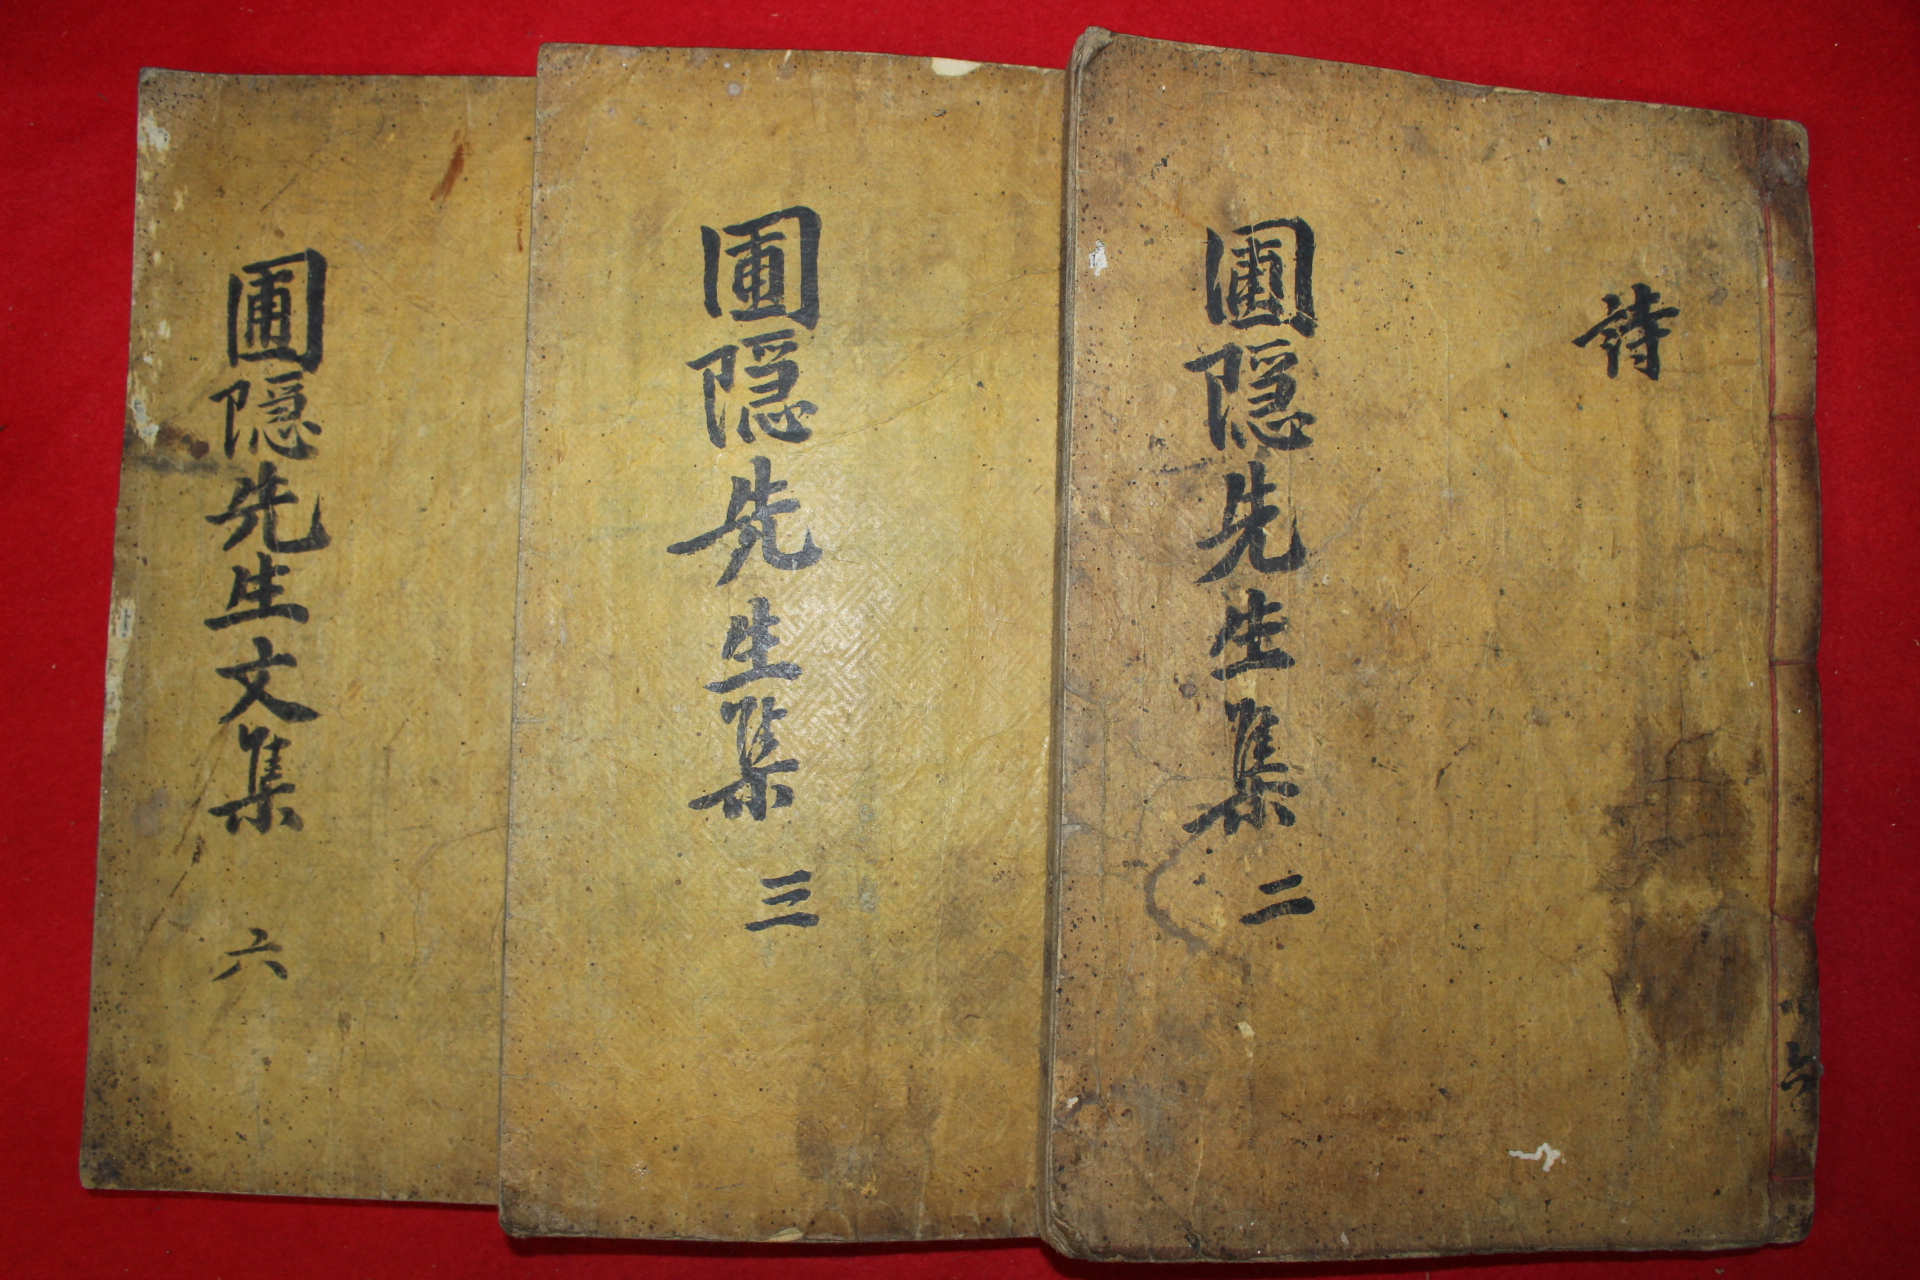 詩
圃隱先生集 二
圃隱先生集 三
圃隱先生文集 六